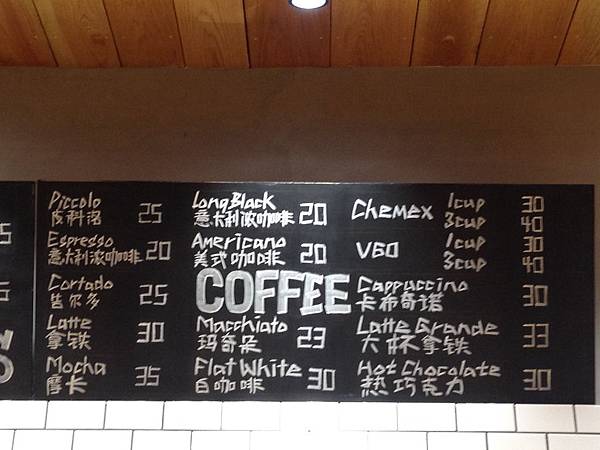 Piccolo 25
皮科洛
Espresso 20
意大利浓咖啡
Cortado 25
告尔多
Latte 30
拿铁
Mocha 35
摩卡
Long Black 20
意大利浓咖啡
Americano 20
美式咖啡
COFFEE
Macchiato 23
玛奇朵
Flat White 30
白咖啡
Chemex 1cup 30
3cup 40
V60 1cup 30
3cup 40
Cappuccino 30
卡布奇诺
Latte Grande 33
大杯拿铁
Hot Chocolate 30
热巧克力